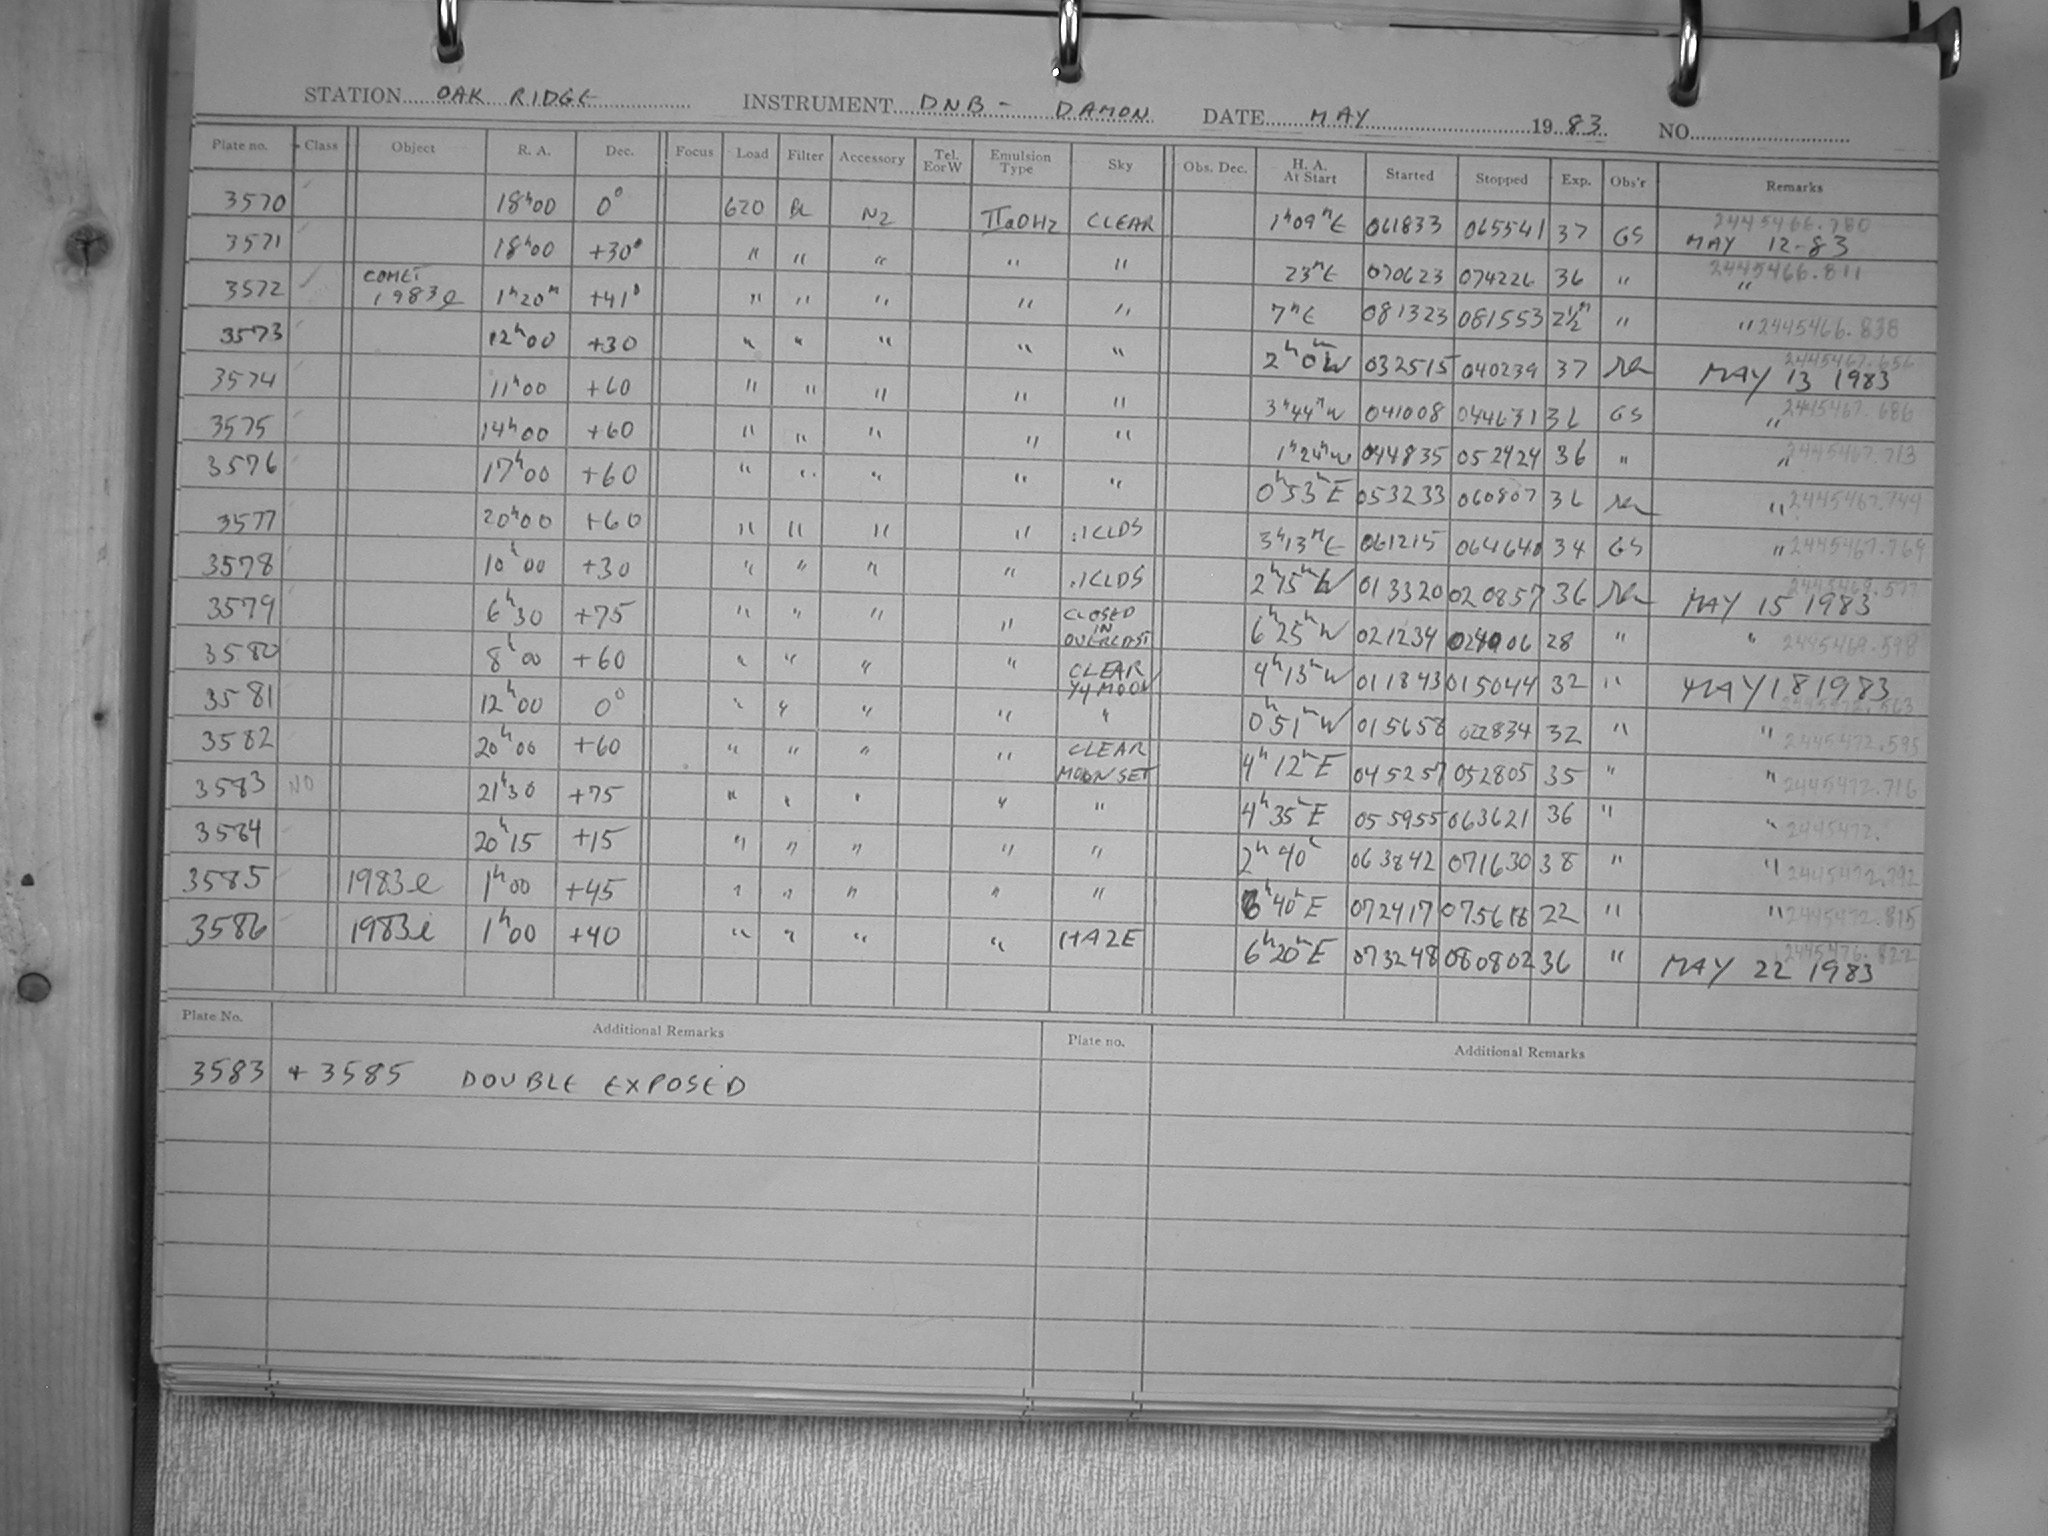 STATION OAK RIDGE INSTRUMENT DNB - DAMON DATE MAY 19 83 NO.
Plate no. Class Object R. A. Dec. Focus Load Filter Accessory Tel. E or W Emulsion Type Sky Obs. Dec. H. A. At Start Started Stopped Exp. Obs'r Remarks
3570 18h00 0° 620 BL N2 IIaOH2 CLEAR 1h09m E 061833 065541 37 GS 2445466.780 MAY 12-83
3571 18h00 +30° " " " " " 23m E 070623 074226 36 " 2445466.811 "
3572 COMET 1983e 1h20m +41° " " " " " 7h E 081323 081553 2½m " " 2445466.838
3573 12h00 +30 " " " " " 2h0m W 032515 040239 37 2445467.656 MAY 13 1983
3574 11h00 +60 " " " " " 3h44m W 041008 044631 36 GS " 2445467.686
3575 14h00 +60 " " " " " 1h24m W 044835 052424 36 " " 2445467.713
3576 17h00 +60 " " " " " 0h53m E 053233 060807 36 " 2445467.744
3577 20h00 +60 " " " " .1CLDS 3h13m E 061215 064640 34 GS " 2445467.769
3578 10h00 +30 " " " " .1CLDS 2h15m W 013320 020857 36 2445469.577 MAY 15 1983
3579 6h30 +75 " " " " CLOSED IN OVERCAST 6h25m W 021234 024006 28 " " 2445469.598
3580 8h00 +60 " " " " CLEAR 1/4 MOON 4h13m W 011843 015044 32 " MAY 18 1983
3581 12h00 0° " " " " " 0h51m W 015658 022834 32 " 2445472.563 "
3582 20h00 +60 " " " " CLEAR MOON SET 4h12m E 045257 052805 35 " 2445472.595 "
3583 NO 21h30 +75 " " " " " 4h35m E 055955 063621 36 " 2445472.716 "
3584 20h15 +15 " " " " " 2h40m 063842 071630 38 " 2445472. "
3585 1983e 1h00 +45 " " " " " 6h40m E 072417 075618 22 " " 2445472.792
3586 1983i 1h00 +40 " " " " HAZE 6h20m E 073248 080802 36 " 2445472.815 2445476.822 MAY 22 1983
Plate No. Additional Remarks Plate no. Additional Remarks
3583 + 3585 DOUBLE EXPOSED